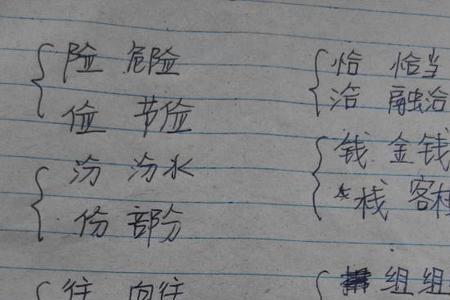 险 危险 恰 恰当
俭 节俭 洽 融洽
汾 汾水 钱 金钱
份 部分 栈 客栈
往 向往 组 组